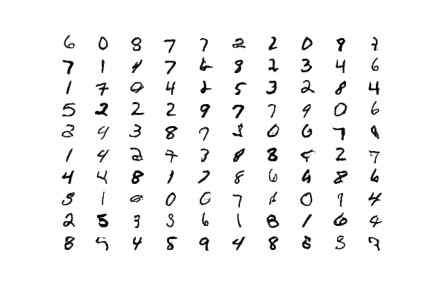 6 0 8 7 7 2 2 0 9 7
7 1 4 7 6 8 2 3 4 6
1 7 0 4 2 5 3 2 8 4
5 2 2 2 9 7 7 9 0 6
2 4 3 8 7 3 0 6 7 8
1 4 2 7 3 8 8 2 7
4 4 8 1 7 8 6 4 8 6
5 1 0 0 0 7 1 0 9 4
2 5 3 3 6 1 8 1 6 4
8 5 4 5 9 4 8 8 3 7